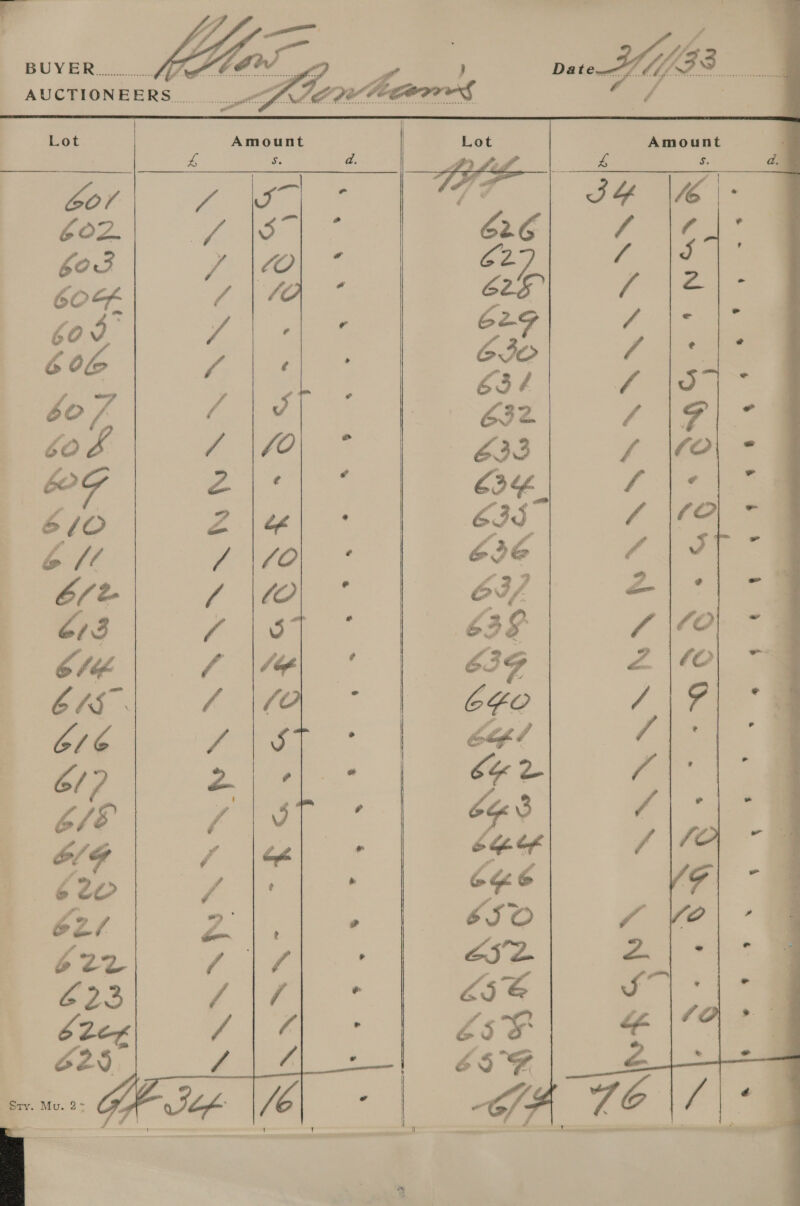 BUYER Date 3/11/33
AUCTIONEERS Bonhams
Lot Amount Lot Amount
£ s. d. B/F £ s. d.
601 1 5 - 34 16 -
602 1 5 - 626 1 1 -
603 1 10 - 627 1 5 -
604 1 10 - 628 1 2 -
605 1 - - 629 1 - -
606 1 - - 630 1 - -
607 1 5 - 631 1 5 -
608 1 10 - 632 1 9 -
609 2 - - 633 1 10 -
610 2 4 - 634 1 - -
611 1 10 - 635 1 10 -
612 1 10 - 636 1 5 -
613 1 5 - 637 2 - -
614 1 14 - 638 1 10 -
615 1 10 - 639 2 10 -
616 1 5 - 640 1 9 -
617 2 - - 641 1 - -
618 1 5 - 642 1 - -
619 1 4 - 643 1 - -
620 1 - - 644 1 10 -
621 2 - - 646 19 -
622 1 1 - 650 1 10 -
623 1 1 - 652 2 - -
624 1 1 - 656 5 - -
625 1 1 - 658 4 10 -
659 2 - -
Sry. Mu. 2- C/F 34 16 - C/F 76 1 -